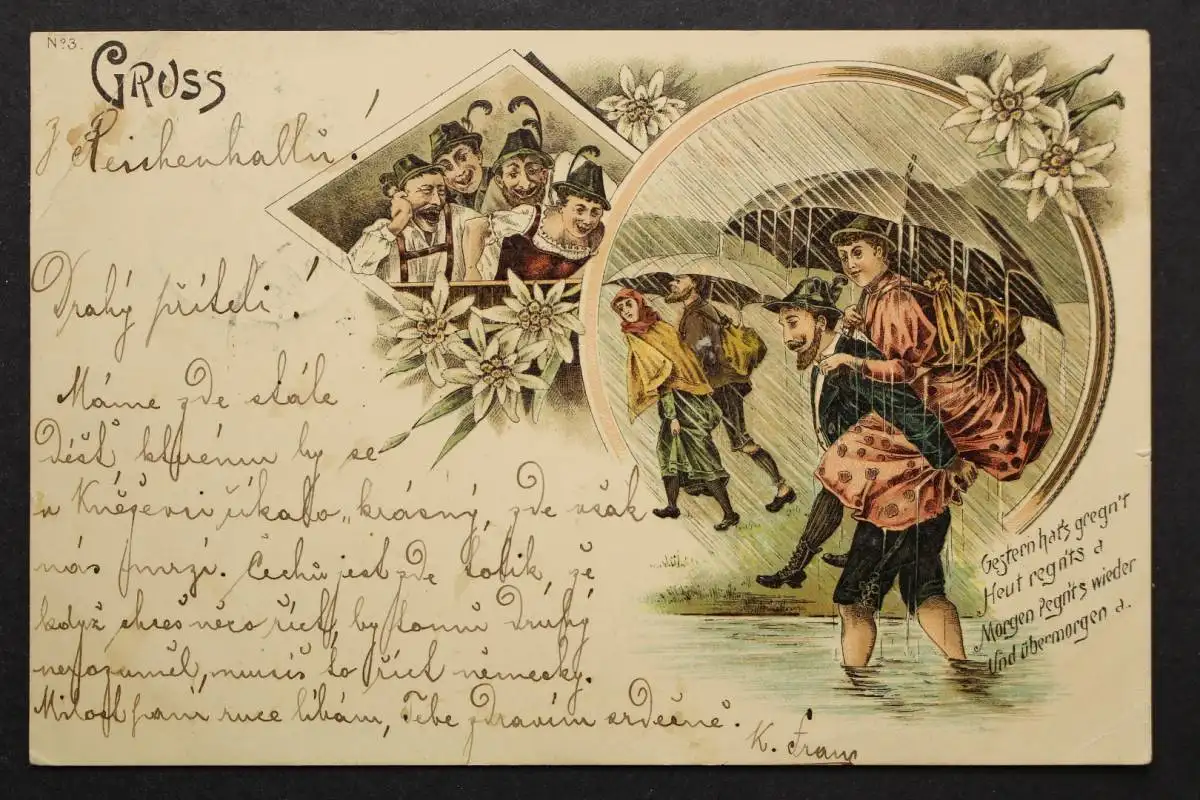 No 3.
GRUSS
Z Reichenhallu!
Drahý příteli!
Máme zde stále
déšť, kterému by se
v Kněževsi říkalo „krásný, zde však
nás mrzí. Čechů jest zde tolik, že
když chceš něco říct, by tomu Druhý
nerozuměl, musíš to říct německy.
Milost paní ruce líbám, Tebe zdravím srdečně.
K. Franz
Gestern hat's gregn't
Heut regnt's a
Morgen Regnt's wieder
Und übermorgen a.